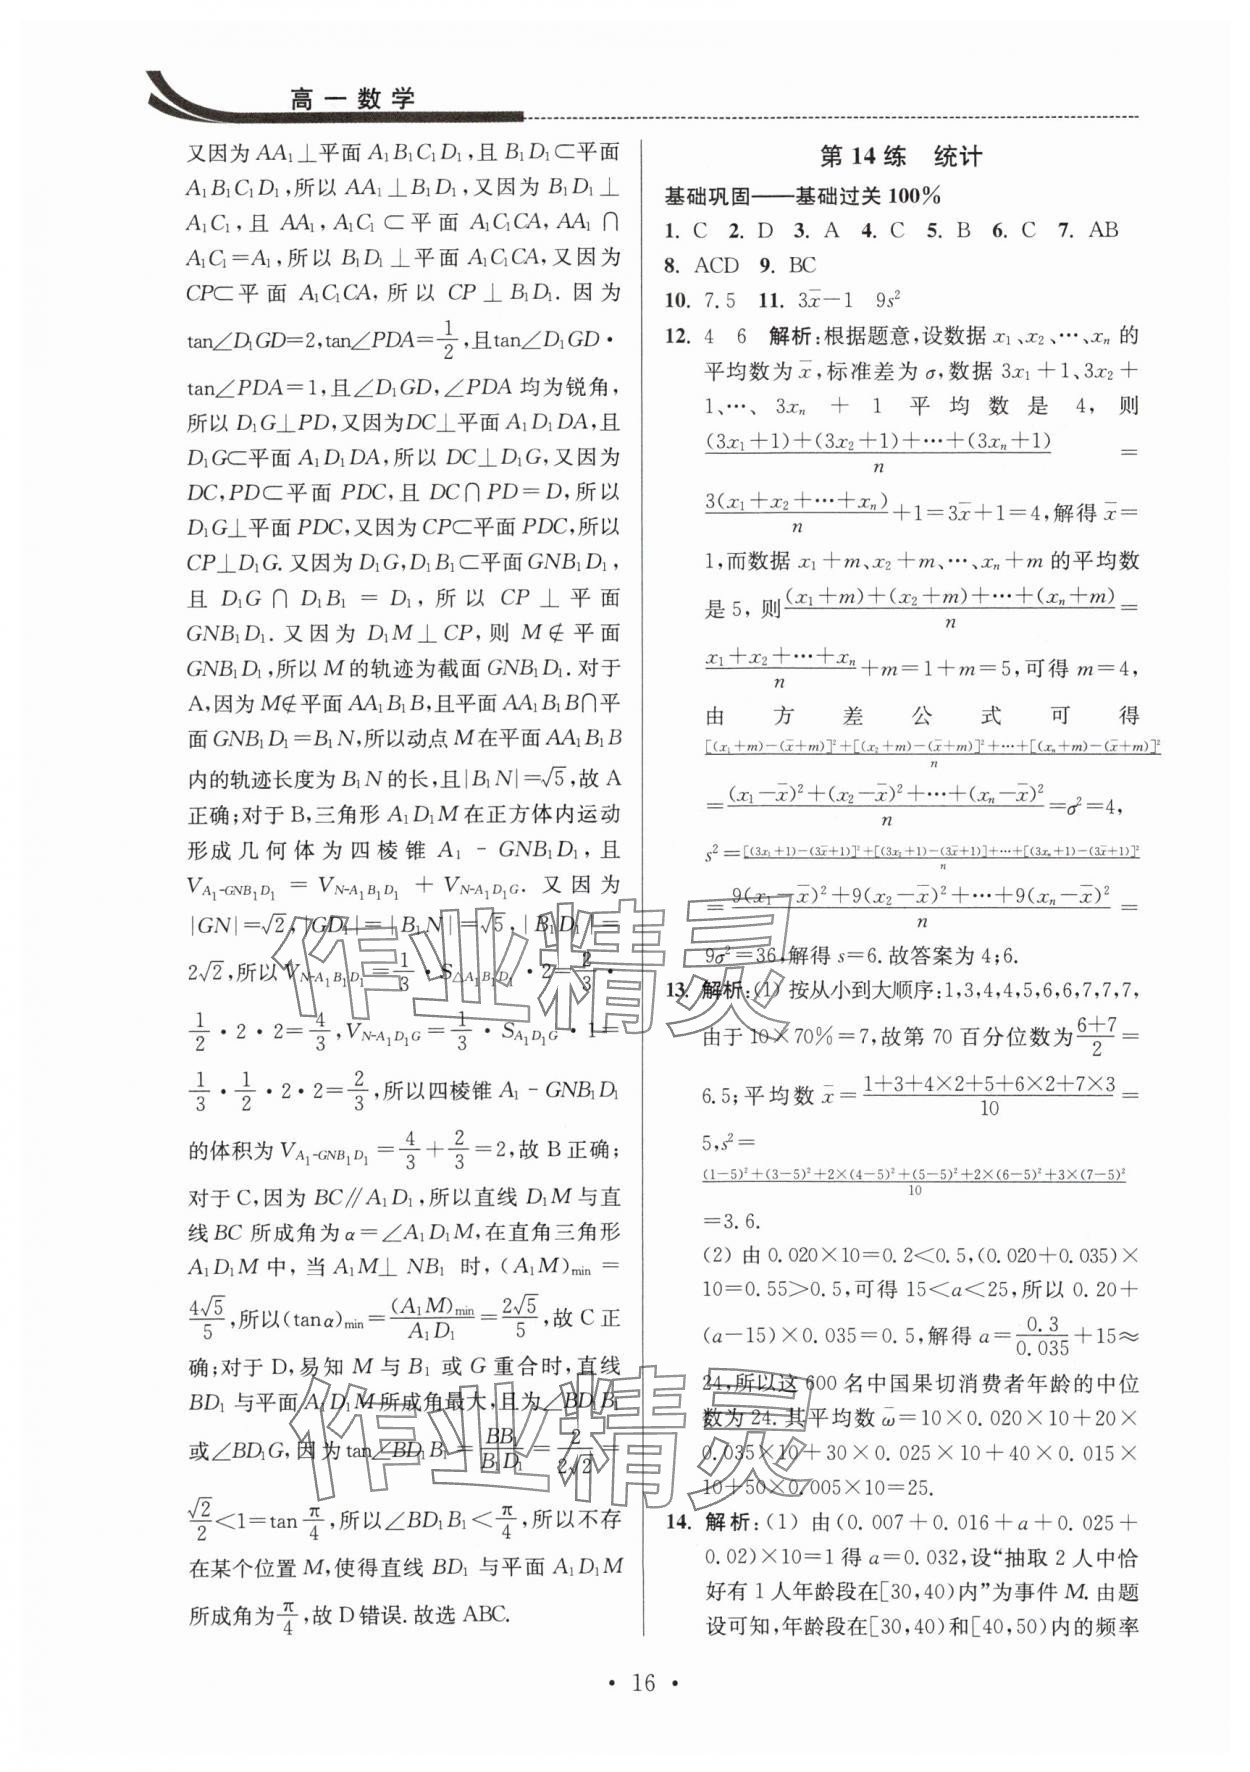 高一数学
又因为 AA₁⊥平面 A₁B₁C₁D₁,且 B₁D₁⊂平面
A₁B₁C₁D₁,所以 AA₁⊥B₁D₁,又因为 B₁D₁⊥
A₁C₁,且 AA₁,A₁C₁⊂平面 A₁C₁CA,AA₁∩
A₁C₁=A₁,所以 B₁D₁⊥平面 A₁C₁CA,又因为
CP⊂平面 A₁C₁CA,所以 CP⊥B₁D₁.因为
tan∠D₁GD=2,tan∠PDA=1/2,且tan∠D₁GD·
tan∠PDA=1,且∠D₁GD,∠PDA 均为锐角,
所以 D₁G⊥PD,又因为DC⊥平面 A₁D₁DA,且
D₁G⊂平面 A₁D₁DA,所以 DC⊥D₁G,又因为
DC,PD⊂平面 PDC,且 DC∩PD=D,所以
D₁G⊥平面 PDC,又因为 CP⊂平面 PDC,所以
CP⊥D₁G.又因为 D₁G,D₁B₁⊂平面 GNB₁D₁,
且 D₁G∩D₁B₁=D₁,所以 CP⊥平面
GNB₁D₁.又因为 D₁M⊥CP,则 M∉平面
GNB₁D₁,所以 M 的轨迹为截面 GNB₁D₁.对于
A,因为 M∉平面 AA₁B₁B,且平面 AA₁B₁B∩平
面 GNB₁D₁=B₁N,所以动点 M 在平面 AA₁B₁B
内的轨迹长度为 B₁N 的长,且|B₁N|=√5,故 A
正确;对于 B,三角形 A₁D₁M 在正方体内运动
形成几何体为四棱锥 A₁-GNB₁D₁,且
V_{A₁-GNB₁D₁}=V_{N-A₁B₁D₁}+V_{N-A₁D₁G}.又因为
|GN|=√2,|GD₁|=|B₁N|=√5,|B₁D₁|=
2√2,所以 V_{N-A₁B₁D₁}=1/3·S_{△A₁B₁D₁}·2=2/3·
1/2·2·2=4/3,V_{N-A₁D₁G}=1/3·S_{A₁D₁G}·1=
1/3·1/2·2·2=2/3,所以四棱锥 A₁-GNB₁D₁
的体积为 V_{A₁-GNB₁D₁}=4/3+2/3=2,故 B 正确;
对于 C,因为 BC∥A₁D₁,所以直线 D₁M 与直
线 BC 所成角为 α=∠A₁D₁M,在直角三角形
A₁D₁M 中,当 A₁M⊥NB₁ 时,(A₁M)min=
4√5/5,所以(tanα)min=(A₁M)min/A₁D₁=2√5/5,故 C 正
确;对于 D,易知 M 与 B₁ 或 G 重合时,直线
BD₁ 与平面 A₁D₁M 所成角最大,且为∠BD₁B₁
或∠BD₁G,因为 tan∠BD₁B₁=BB₁/B₁D₁=2/2√2=
√2/2<1=tan π/4,所以∠BD₁B₁<π/4,所以不存
在某个位置 M,使得直线 BD₁ 与平面 A₁D₁M
所成角为π/4,故 D 错误.故选 ABC.
第 14 练 统计
基础巩固——基础过关 100%
1. C 2. D 3. A 4. C 5. B 6. C 7. AB
8. ACD 9. BC
10. 7.5 11. 3x̄-1 9s²
12. 4 6 解析:根据题意,设数据 x₁、x₂、…、xₙ 的
平均数为 x̄,标准差为 σ,数据 3x₁+1、3x₂+
1、…、3xₙ+1 平均数是 4,则
[(3x₁+1)+(3x₂+1)+…+(3xₙ+1)]/n=
3(x₁+x₂+…+xₙ)/n+1=3x̄+1=4,解得 x̄=
1,而数据 x₁+m、x₂+m、…、xₙ+m 的平均数
是 5,则[(x₁+m)+(x₂+m)+…+(xₙ+m)]/n=
(x₁+x₂+…+xₙ)/n+m=1+m=5,可得 m=4,
由方差公式可得
{[(x₁+m)-(x̄+m)]²+[(x₂+m)-(x̄+m)]²+…+[(xₙ+m)-(x̄+m)]²}/n
=[(x₁-x̄)²+(x₂-x̄)²+…+(xₙ-x̄)²]/n=σ²=4,
s²={[(3x₁+1)-(3x̄+1)]²+[(3x₂+1)-(3x̄+1)]+…+[(3xₙ+1)-(3x̄+1)]²}/n
=[9(x₁-x̄)²+9(x₂-x̄)²+…+9(xₙ-x̄)²]/n=
9σ²=36,解得 s=6.故答案为 4;6.
13. 解析:(1) 按从小到大顺序:1,3,4,4,5,6,6,7,7,7,
由于 10×70%=7,故第 70 百分位数为(6+7)/2=
6.5;平均数 x̄=(1+3+4×2+5+6×2+7×3)/10=
5,s²=
[(1-5)²+(3-5)²+2×(4-5)²+(5-5)²+2×(6-5)²+3×(7-5)²]/10
=3.6.
(2) 由 0.020×10=0.2<0.5,(0.020+0.035)×
10=0.55>0.5,可得 15<a<25,所以 0.20+
(a-15)×0.035=0.5,解得 a=0.3/0.035+15≈
24,所以这 600 名中国果切消费者年龄的中位
数为 24.其平均数 ω̄=10×0.020×10+20×
0.035×10+30×0.025×10+40×0.015×
10+50×0.005×10=25.
14. 解析:(1) 由(0.007+0.016+a+0.025+
0.02)×10=1 得 a=0.032,设“抽取 2 人中恰
好有 1 人年龄段在[30,40)内”为事件 M.由题
设可知,年龄段在[30,40)和[40,50)内的频率
作业精灵
作业精灵
· 16 ·